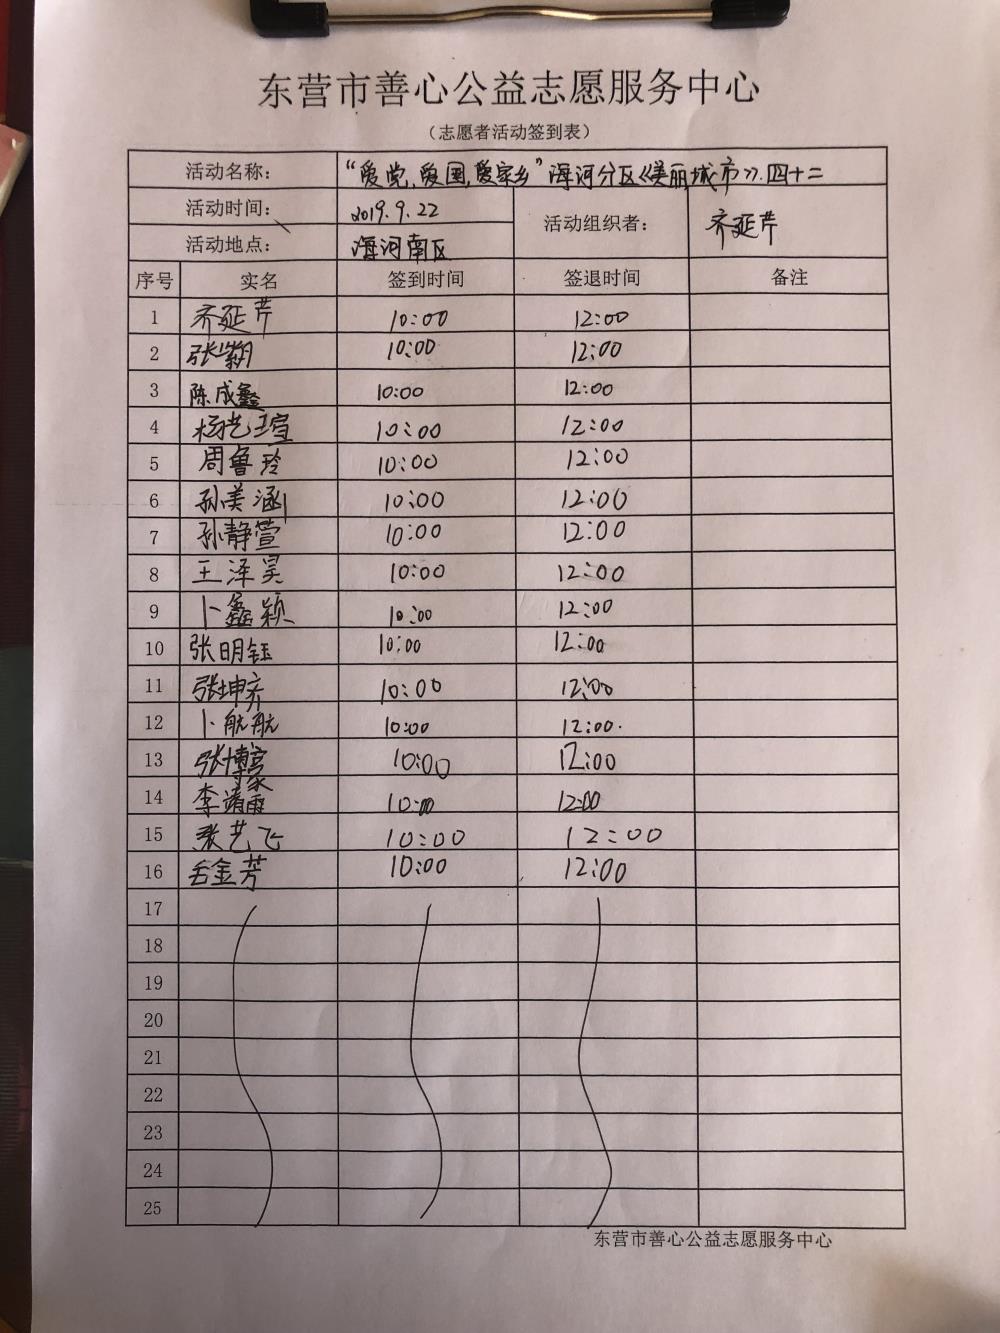 东营市善心公益志愿服务中心
（志愿者活动签到表）
活动名称： “爱党,爱国,爱家乡”海河分区《美丽城市》.四十二
活动时间： 2019.9.22 活动组织者： 齐延芹
活动地点： 海河南区
序号 实名 签到时间 签退时间 备注
1 齐延芹 10:00 12:00
2 10:00 12:00
3 陈成鑫 10:00 12:00
4 杨艺瑄 10:00 12:00
5 周鲁玲 10:00 12:00
6 孙美涵 10:00 12:00
7 孙静萱 10:00 12:00
8 王泽昊 10:00 12:00
9 卜鑫颖 10:00 12:00
10 张明钰 10:00 12:00
11 张坤齐 10:00 12:00
12 卜航航 10:00 12:00.
13 张博豪 10:00 12:00
14 李靖雨 10:00 12:00
15 张艺飞 10:00 12:00
16 金芳 10:00 12:00
17
18
19
20
21
22
23
24
25
东营市善心公益志愿服务中心